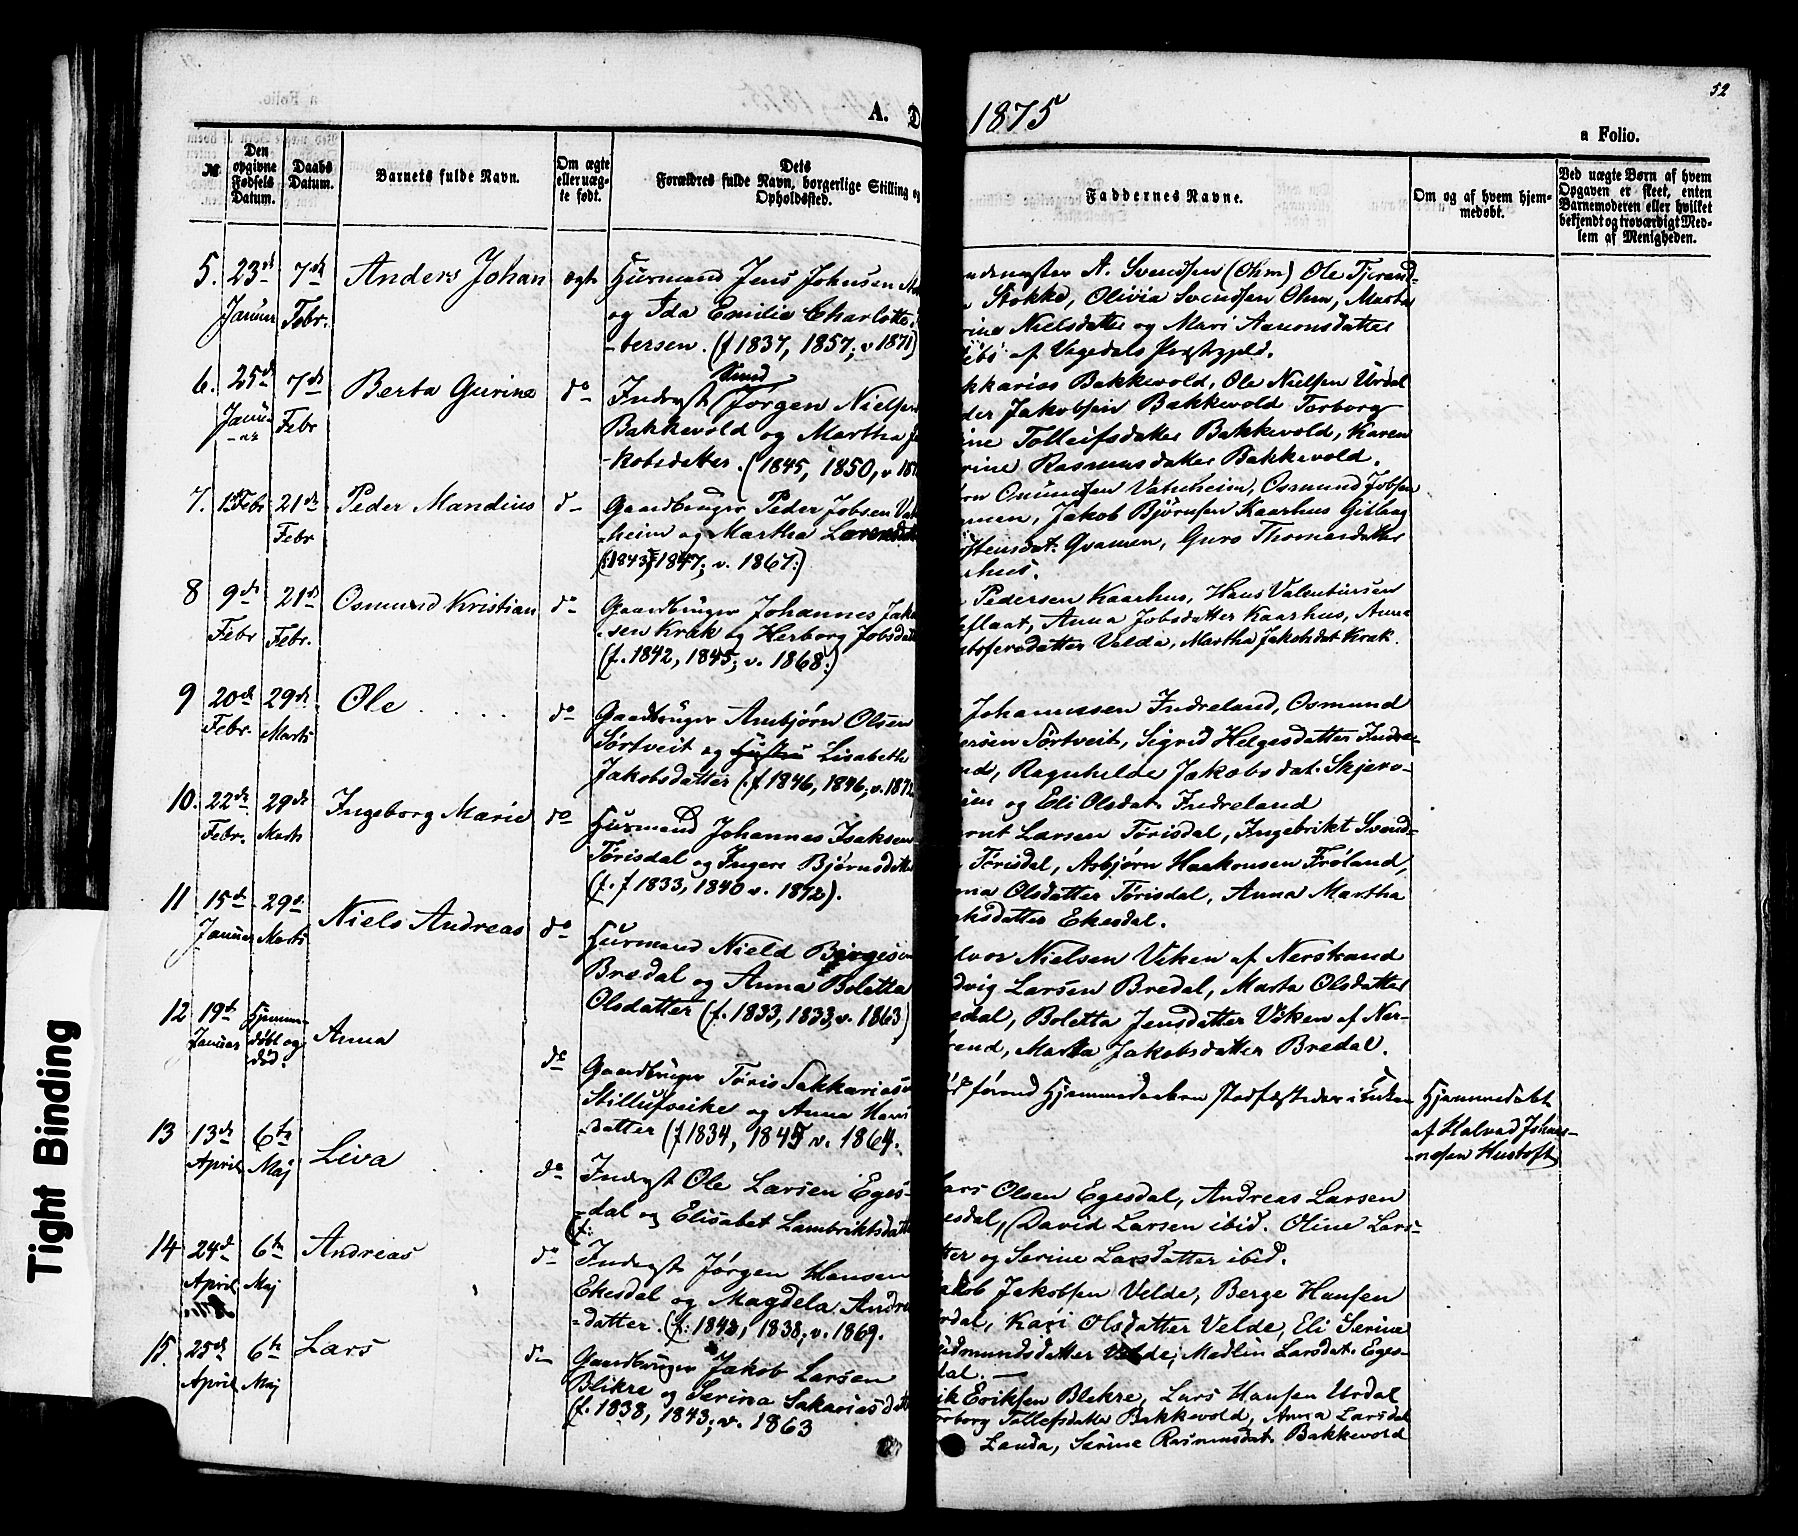 52
A. D
1875
a Folio.
№
Den opgivne Fødsels Datum.
Daabs Datum.
Barnets fulde Navn.
Om ægte eller uægte født.
Dets Forældres fulde Navn, borgerlige Stilling og Opholdssted.
Faddernes Navne.
Om og af hvem hjemmedøbt.
Ved uægte Børn af hvem Opgaven er skeet, enten Barnemoderen eller hvilket bekjendt og troværdigt Medlem af Menigheden.
5. 23de Januar 7de Febr. Anders Johan ægte
Huusmand Jens Johnsen
og Ida Emilie Charlotte
-bersen. (f 1837, 1857; v 1871)
A. Svendsen (Ohm) Ole Tjerand-
Stokke, Olivia Svendsen Ohm, Marta
rine Nielsdatter og Mari Aanonsdatter
af Vegedals Præstgjeld.
6. 25de Januar 7de Febr Berta Gurine do
Inderst Jørgen Nielsen
Bakkevold og Martha J
-kobsdatter. (1845, 1850, v 18
kkarias Bakkevold, Ole Nielsen Urdal
der Jakobsen Bakkevold Torborg
ine Tolleifsdatter Bakkevold, Karen
rine Rasmusdatter Bakkevold.
7. 1ste Febr 21de Febr Peder Mandius d-
Gaardbruger Peder Jobsen Vat
-heim og Martha Larsdatter
(1843, 1847; v. 1867.)
ørn Osmundsen Vatneheim, Osmund Jobsen
amen, Jakob Bjørnsen Kaarhus Gitlaug
stensdat. Qvamen, Guro Thomasdatter
rhus.
8 9de Febr 21de Febr. Osmund Kristian do
Gaardbruger Johannes Jako
-sen Krak og Herborg Jobsdat
(f. 1842, 1845; v. 1868.)
Pedersen Kaarhus, Hans Valentinsen
flaat, Anna Jobsdatter Kaarhus, Anna
stofersdatter Velde, Martha Jakobsdat Krak.
9 20de Febr. 29de Marts Ole do
Gaardbruger Arnbjørn Olsen
Sørtveit og Hustru Lisabeth
Jakobsdatter (f 1846, 1846, v. 1872
Johannessen Indreland, Osmund
ersen Sørtveit, Sigrid Helgesdatter Indre-
nd, Ragnhilde Jakobsdat. Skjerv-
ien og Eli Olsdat. Indreland
10. 22de Febr. 29de Marts Ingeborg Marie do
Huusmand Johannes Isaksen
Tørisdal og Ingere Bjørnsdatter
(f. f 1833, 1840 v. 1872).
ernt Larsen Tørisdal, Ingebrikt Svend-
Tørisdal, Asbjørn Haakonsen Frøland,
nna Olsdatter Tørisdal, Anna Martha
aksdatter Ekesdal.
11 15de Januar 29de Marts Niels Andreas do
Huusmand Nield Børgesen
Bredal og Anna Boletta
Olsdatter (f. 1833, 1833, v. 1863)
lvor Nielsen Viken af Nerstrand
dvig Larsen Bredal, Marta Olsdatter
edal, Boletta Jensdatter Viken af Ner-
trand, Marta Jakobsdatter Bredal.
12 19de Januar Hjemmedøbt og død. Anna do
Gaardbruger Tøris Sakkariass
Stillufseike og Anna Hans
-datter (f 1834, 1845 v. 1864.
førend Hjemmedaaben stadfæstedes i Kirken
Hjemmedøbt
af Halvard Johan-
-nesen Hustoft
13 13de April 6te Maj Liva do
Inderst Ole Larsen Eges-
-dal og Elisabet Lambriktsdatt
(f:
Lars Olsen Egesdal, Andreas Larsen
esdal, David Larsen ibid. Oline Lars-
tter og Serine Larsdatter ibid.
14 24de April 6te Maj Andreas do
Inderst Jørgen Hansen
Ekesdal og Magdela Andre
-datter. (f: 1842, 1838, v. 1869.
Jakob Jakobsen Velde, Berge Hansen
rdal, Kari Olsdatter Velde, Eli Serine
udmundsdatter Velde, Madlin Larsdat. Eges-
dal. —
15. 25de April 6te Maj Lars d-
Gaardbruger Jakob Larsen
Blikre og Serina Sakariasdatt
(f. 1838, 1843; v. 1863
rik Eriksen Blekre, Lars Hansen Urdal
orborg Tollefsdatter Bakkevold, Anna Larsdat
Landa, Serine Rasmusdat. Bakkevold
Tight Binding